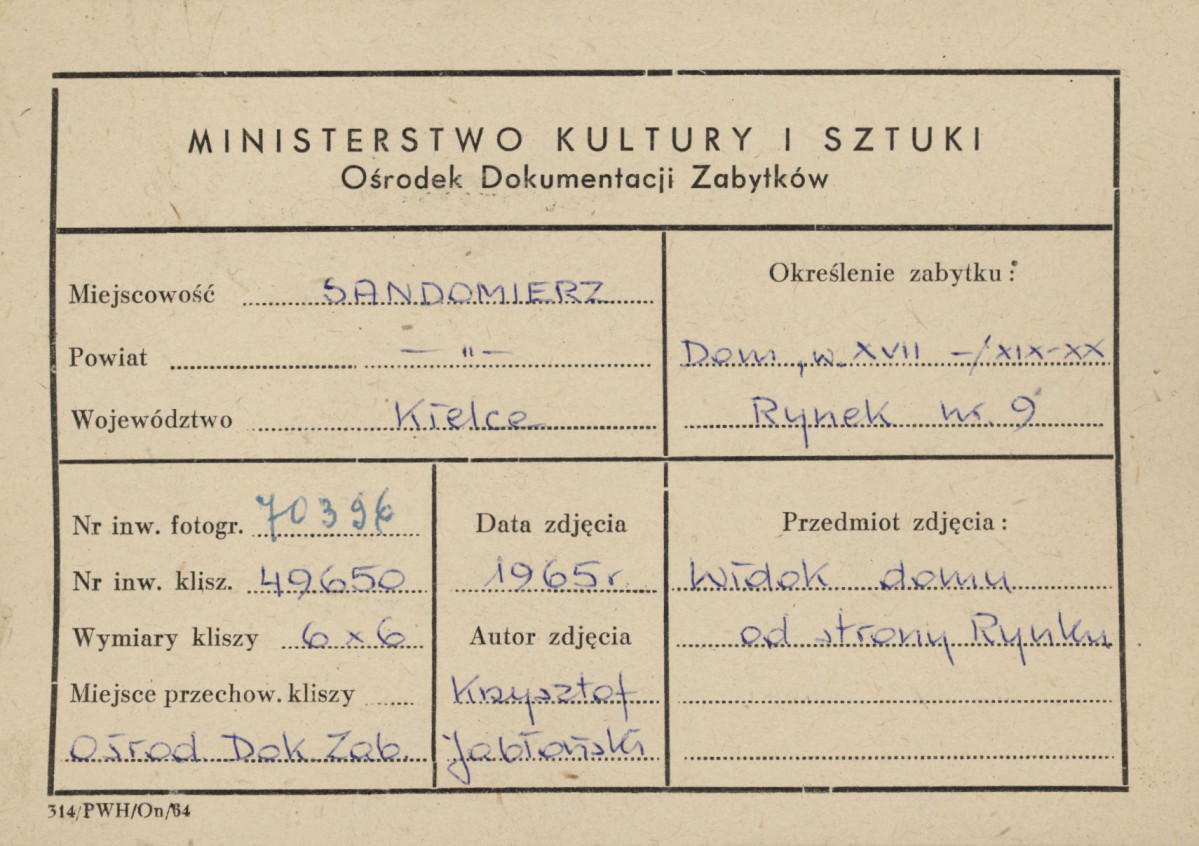 MINISTERSTWO KULTURY I SZTUKI
Ośrodek Dokumentacji Zabytków
Miejscowość SANDOMIERZ
Powiat — " —
Województwo Kielce
Określenie zabytku:
Dom, w. XVII -/XIX-XX
Rynek nr. 9
Nr inw. fotogr. 70396
Nr inw. klisz. 49650
Wymiary kliszy 6 x 6
Miejsce przechow. kliszy
Ośrod. Dok Zab.
Data zdjęcia
1965 r.
Autor zdjęcia
Krzysztof
Jabłoński
Przedmiot zdjęcia:
Widok domu
od strony Rynku
314/PWH/On/64